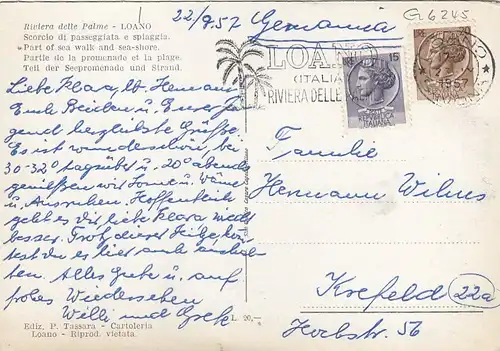 Riviera delle Palme - LOANO
Scorcio di passeggiata e spiaggia.
Part of sea walk and sea-shore.
Partie de la promenade et la plage.
Teil der Seepromenade und Strand.
22/9.57 Germania
G. 6245
LOANO
(ITALIA
RIVIERA DELLE
15
Liebe Klara, lb. Hermann
Euch Beiden u. Eurer Ju-
gend herzlichste Grüße.
Es ist wunderschön, bei
30-32° tagsüber u. 20° abends
genießen wir Sonne u. Wärme
u. Ausruhen. Hoffentlich
geht es dir liebe Klara
besser. Trotz dieser Hitze kön-
test du es hier
ten. Alles Gute u. auf
frohes Wiedersehen
Willi und Grete
Familie
Hermann Wilms
Krefeld 22a
Herbstr. 56
Ediz. P. Tassara - Cartoleria
Loano - Riprod. vietata.
L. 20,-